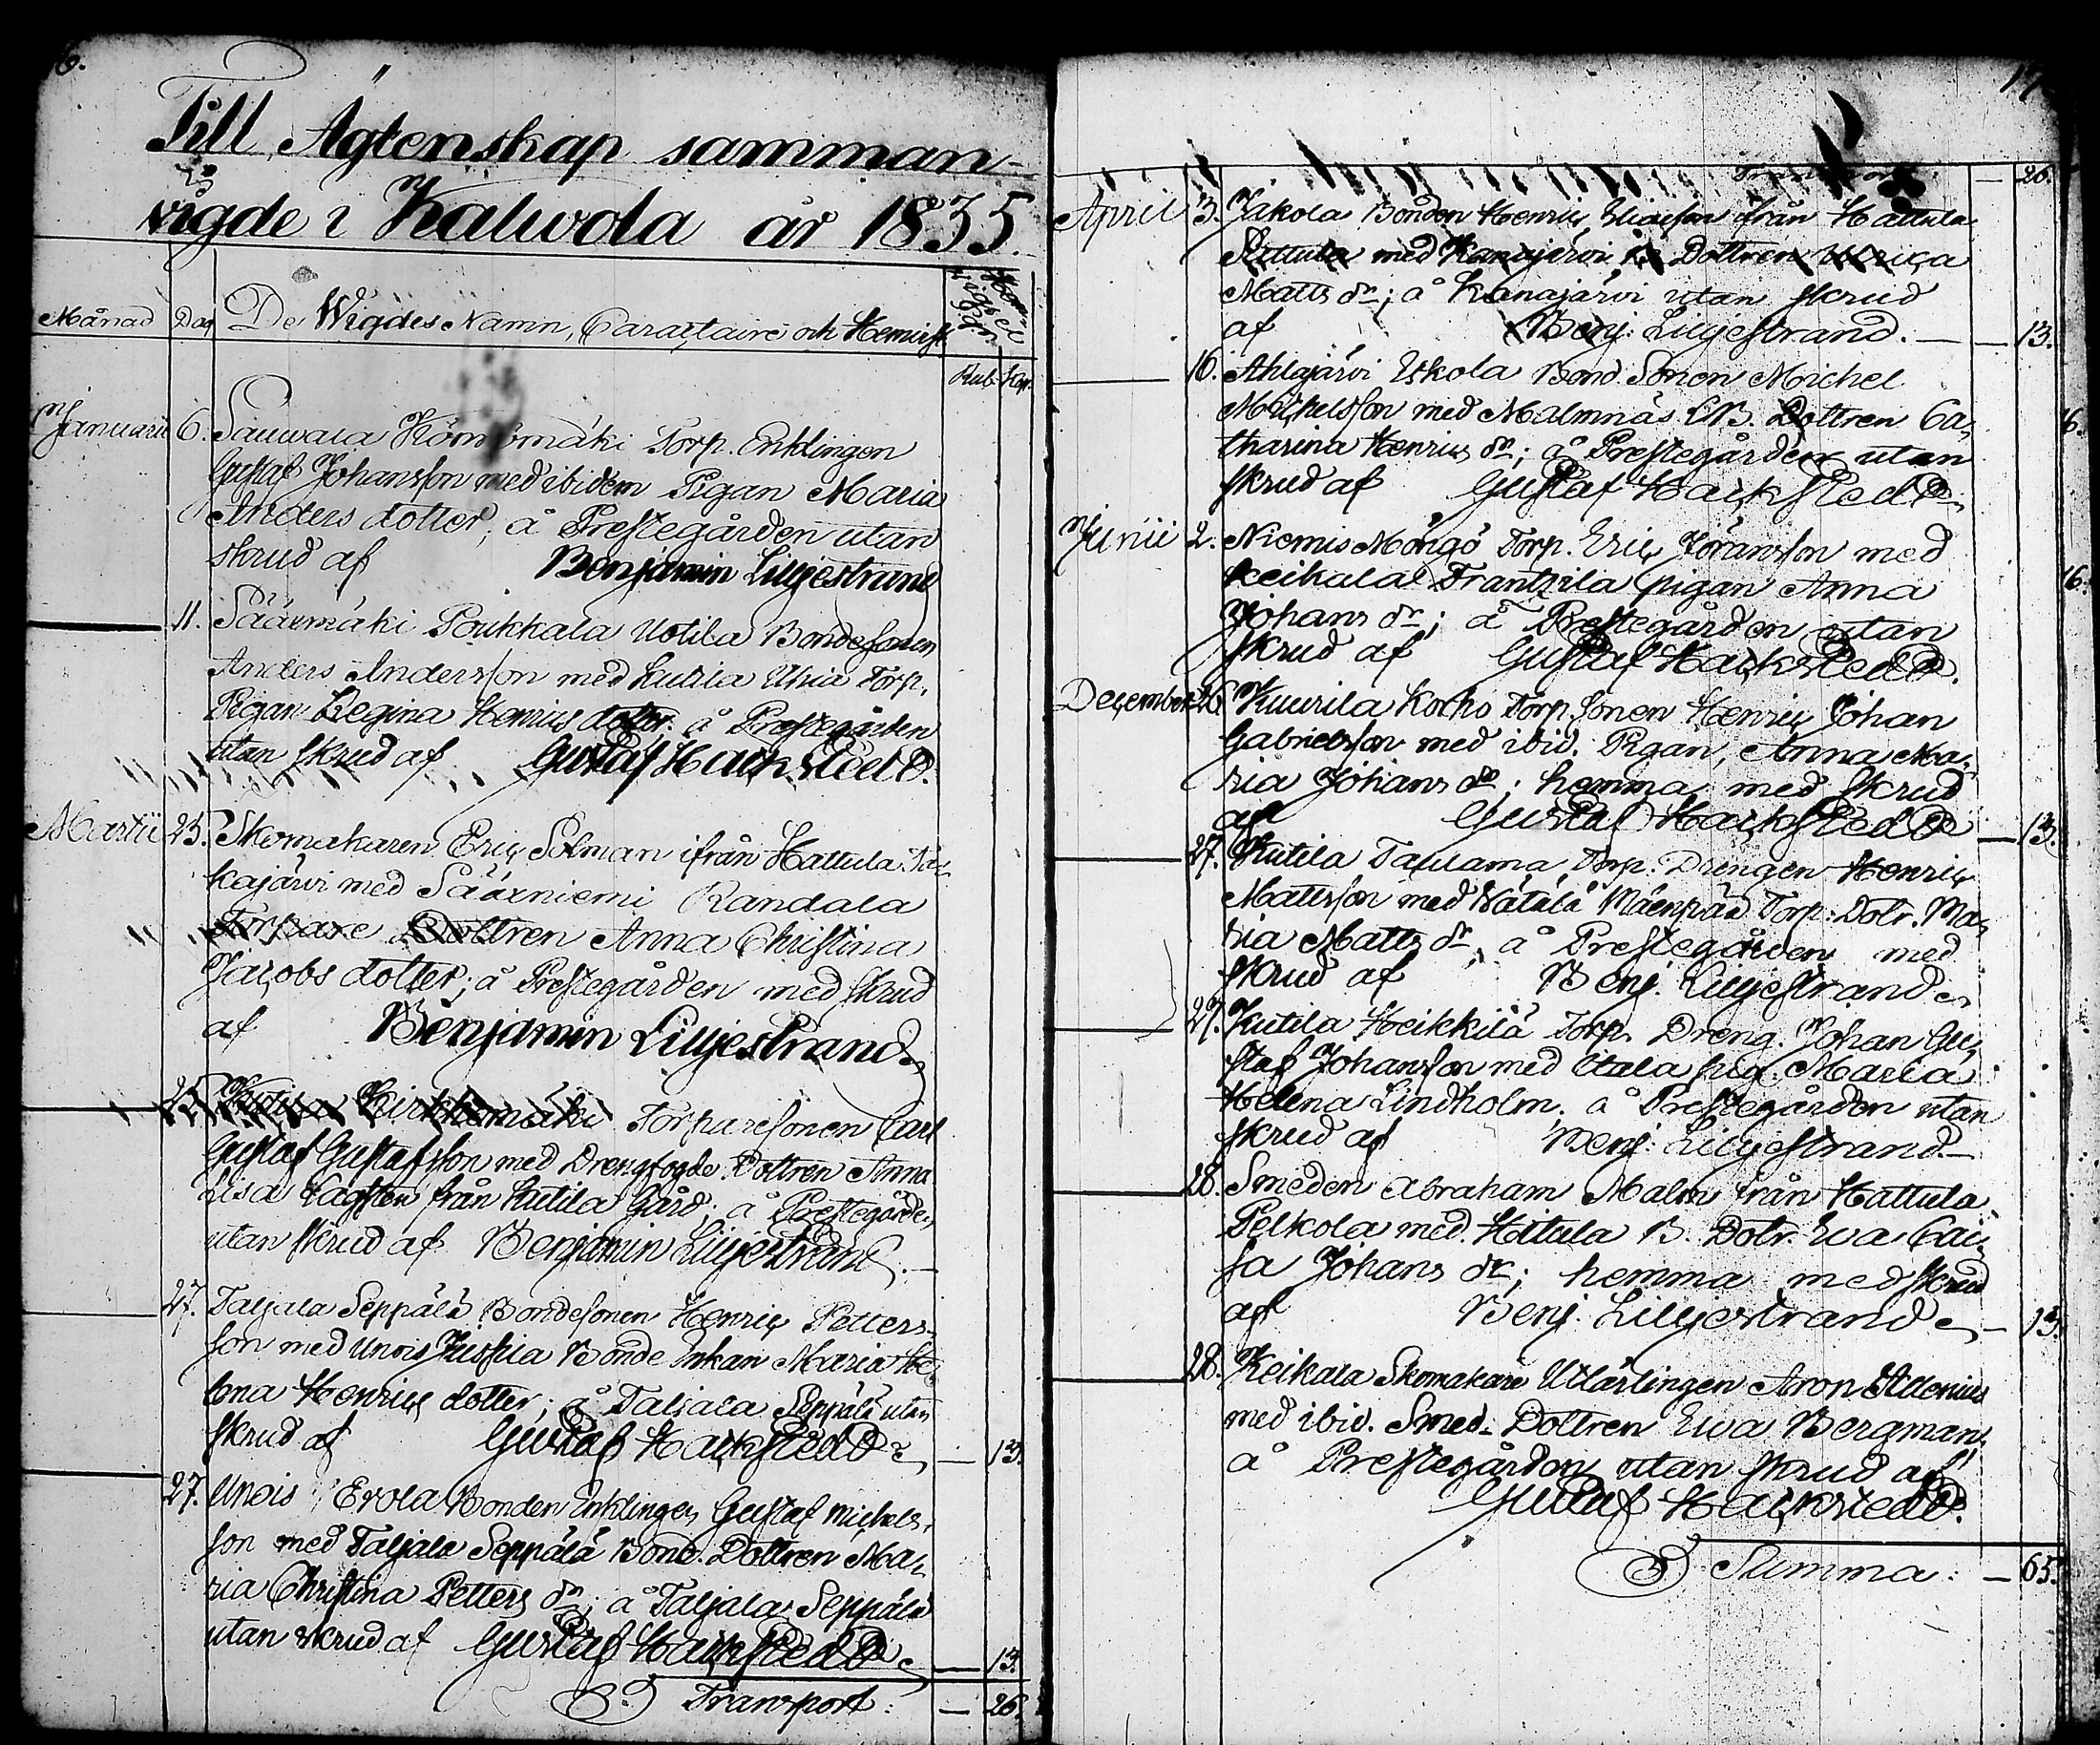 6.
Till Ägtenskap samman-
vigde i Kalwola år 1835.
Månad Dag De Wigdes Namn, Caractaire och Hemvist Hem vigsel
Rub. Kop.
Januarii 6. Sauwala Torp. Enklingen
Gustaf Johansson med ibidem Pigan Maria
Anders dotter; å Prestegården utan
skrud af Benjamin Lilljestrand
11. Säärmäki Poukkala Uotila Bondesonen
Anders Andersson med Kutila Uhia Torp.
Pigan Regina Henrics dotter. å Prestegården
utan skrud af Gustaf Hackstedt.
Martii 25. Skomakaren Eric Solman ifrån Hattula
kajärvi med Sääxniemi Randala
Torpare Dottren Anna Christina
Jacobs dotter; å Prestegården med skrud
af Benjamin Lilljestrand.
25. Kirkkomäki Torparesonen Carl
Gustaf Gustafsson med Drengfogde Dottren Anna
Lisa från Kutila Gård; å Prestegården
utan skrud af Benjamin Lilljestrand.
27. Taljala Seppälä Bondesonen Henric Petters-
son med Unois Jussila Bonde Enkan Maria He-
lena Henrics dotter; å Taljala Seppälä utan
skrud af Gustaf Hackstedt — 13.
27. Unois Erola Bonden Enklingen Gustaf Michels-
son med Taljala Seppälä Bond. Dottren Ma-
ria Christina Petters dr; å Taljala Seppälä
utan skrud af Gustaf Hackstedt — 13.
Transport: — 26.
17
Transport — 26.
April 3. Jakola Bonden Henric Eliasson ifrån Hattula
med Kanajärvi Dottren Ulrica
Matts dr; å Kanajärvi utan skrud
af Benj. Lilljestrand. — 13.
16. Ahlajärvi Eskola Bond. Sonen Michel
Michelsson med Malmnäs Dottren Ca-
tharina Henrics dr; å Prestegården utan
skrud af Gustaf Hackstedt
Junii 2. Niemis Mängö Torp. Eric Jöransson med
Keikala Frantsila pigan Anna
Johans dr; å Prestegården utan
skrud af Gustaf Hackstedt.
December 26. Kuurila Korho Torp. Sonen Henric Johan
Gabrielsson med ibid. Pigan, Anna Ma-
ria Johans dr; hemma med skrud
af Gustaf Hackstedt — 13.
27. Kutila Torp. Drengen Henric
Mattsson med Wätälä Mäenpää Torp. Dotr. Ma-
ria Matts dr, å Prestegården med
skrud af Benj. Lilljestrand
27. Kutila Heikkilä Torp. Dreng. Johan Gu-
staf Johansson med Utala pig. Maria
Helena Lindholm. å Prestegården utan
skrud af Benj. Lilljestrand —
28. Smeden Abraham Malm från Hattula
Pelkola med Hittula B. Dotr. Ewa Cai-
sa Johans dr; hemma med skrud
af Benj. Lilljestrand — 13.
28. Keikala Skomakare Utlärlingen Aron
med ibid. Smed. Dottren Ewa Bergman,
å Prestegården utan skrud af
Gustaf Hackstedt.
Summa: — 65.